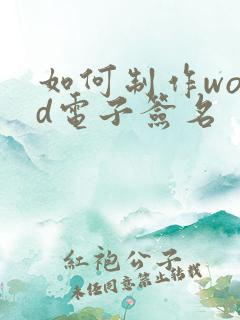 如何制作wo
d電子簽名
紅袍公子
未任同意禁止轉載